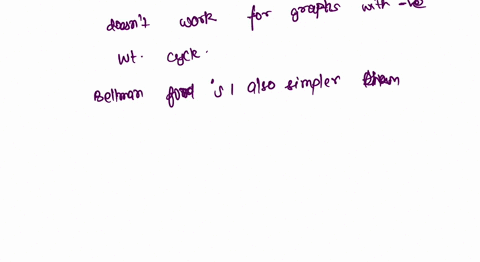 doesn't work for graphs with -ve
wt. cycle.
Bellman ford is also simpler than